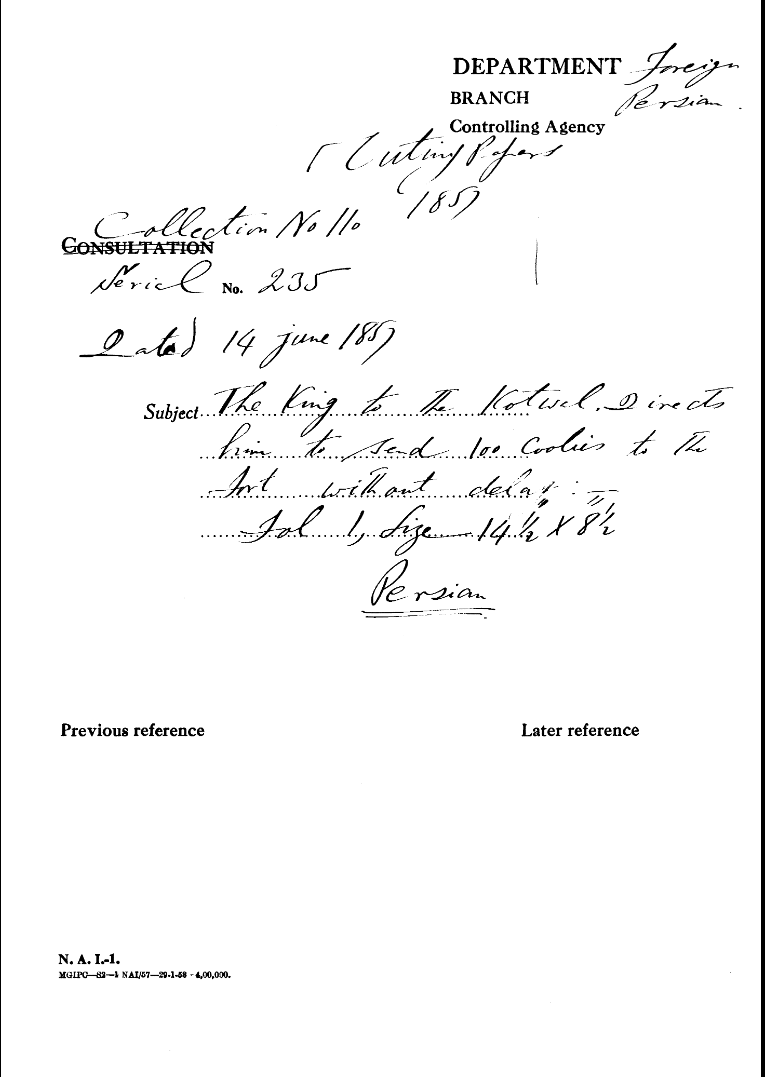 DEPARTMENT Foreign
BRANCH Persian.
Controlling Agency
Mutiny Papers
1857
Collection No 110
CONSULTATION
Serial No. 235
Dated 14 june 1857
Subject The King to the Kotwal. Directs
him to send 100 Coolies to the
fort without delay : —
Fol 1, Size — 14 1/2" X 8 1/2"
Persian
Previous reference Later reference
N. A. I.-1.
MGIPC—S2—1 NAI/57—29-1-58 - 4,00,000.